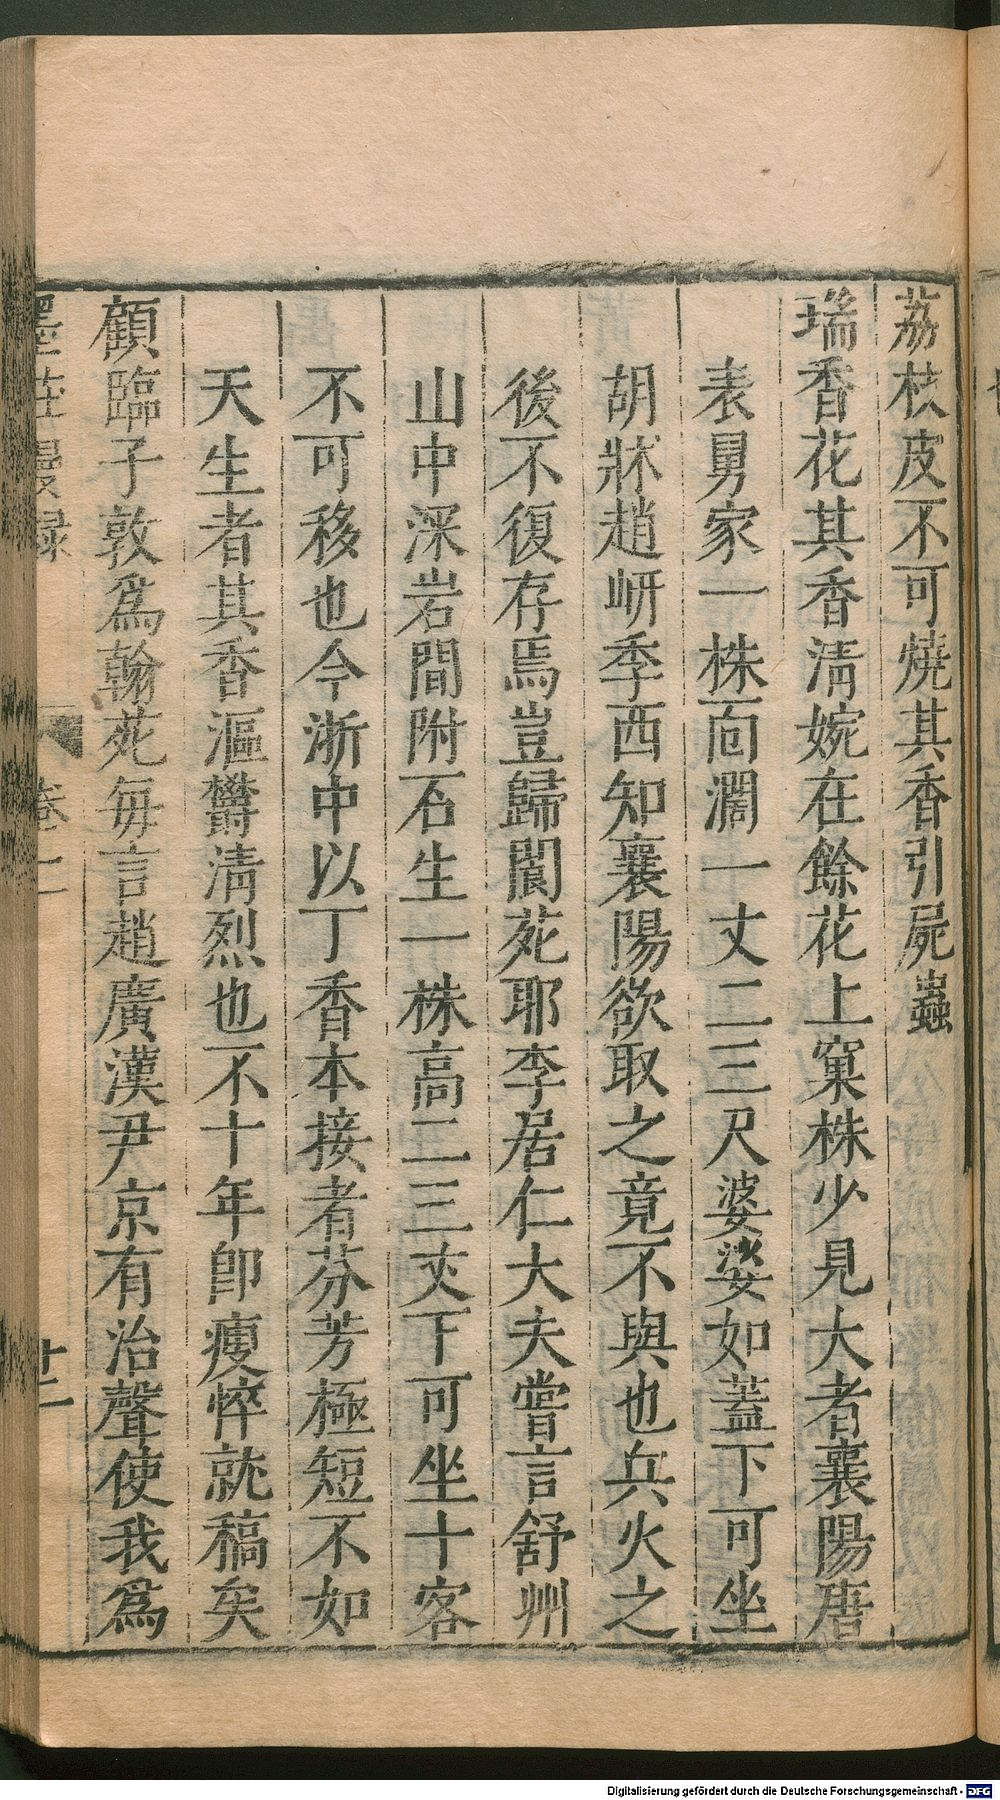 荔枝皮不可燒其香引屍蟲
瑞香花其香清婉在餘花上窠株少見大者襄陽唐
表舅家一株面濶一丈二三尺婆娑如蓋下可坐
胡牀趙岍季西知襄陽欲取之竟不與也兵火之
後不復存焉豈歸閬苑耶李居仁大夫嘗言舒州
山中深岩間附石生一株高二三丈下可坐十客
不可移也今浙中以丁香本接者芬芳極短不如
天生者其香漚欝清烈也不十年卽瘦悴就稿矣
顧臨子敦爲翰苑每言趙廣漢尹京有治聲使我爲
墨莊漫録
卷一
十二
Digitalisierung gefördert durch die Deutsche Forschungsgemeinschaft - DFG